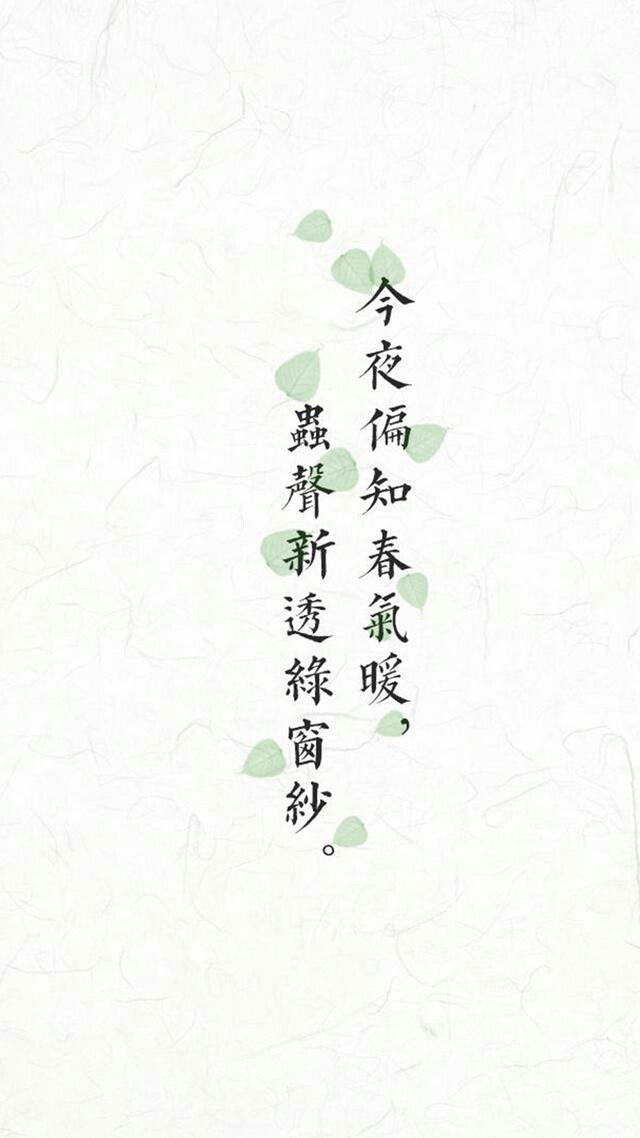 今夜偏知春氣暖，
蟲聲新透綠窗紗。